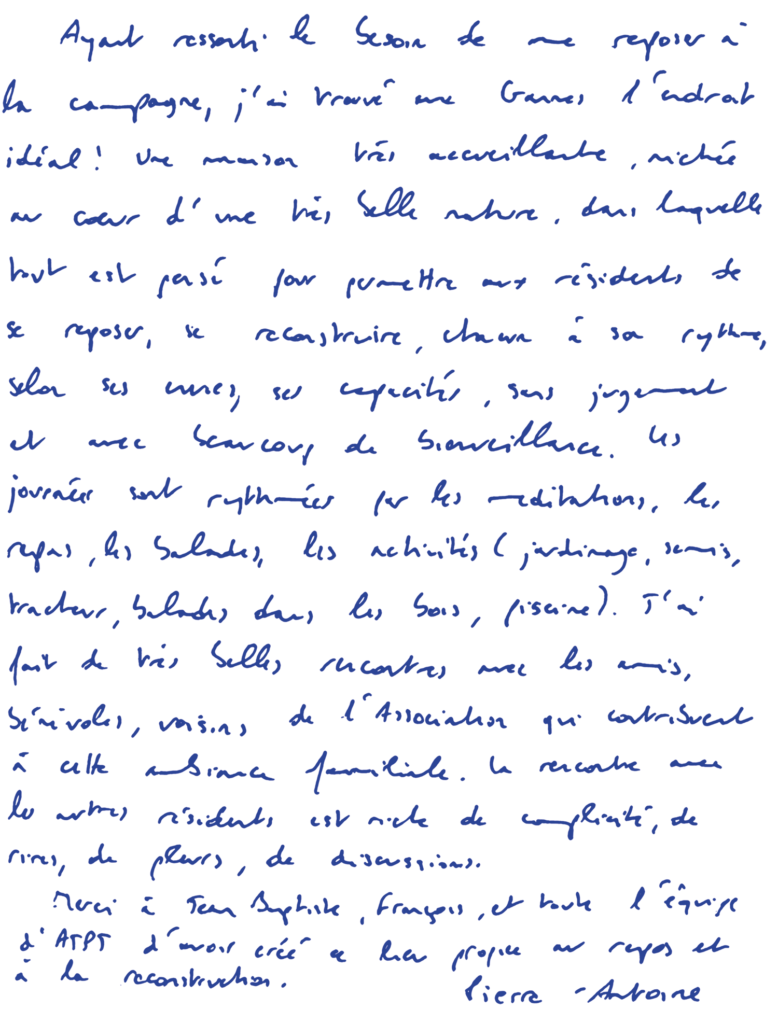 Ayant ressenti le besoin de me reposer à
la campagne, j'ai trouvé aux Cannes l'endroit
idéal ! Une maison très accueillante, nichée
au cœur d'une très belle nature, dans laquelle
tout est pensé pour permettre aux résidents de
se reposer, se reconstruire, chacun à son rythme,
selon ses envies, ses capacités, sans jugement
et avec beaucoup de bienveillance. Les
journées sont rythmées par les meditations, les
repas, les balades, les activités (jardinage, semis,
tracteur, balades dans les bois, piscine). J'ai
fait de très belles rencontres avec les amis,
bénévoles, voisins de l'Association qui contribuent
à cette ambiance familiale. La rencontre avec
les autres résidents est riche de complicité, de
rires, de pleurs, de discussions.
Merci à Jean Baptiste, François, et toute l'équipe
d'ATPT d'avoir créé ce lieu propice au repos et
à la reconstruction.
Pierre-Antoine